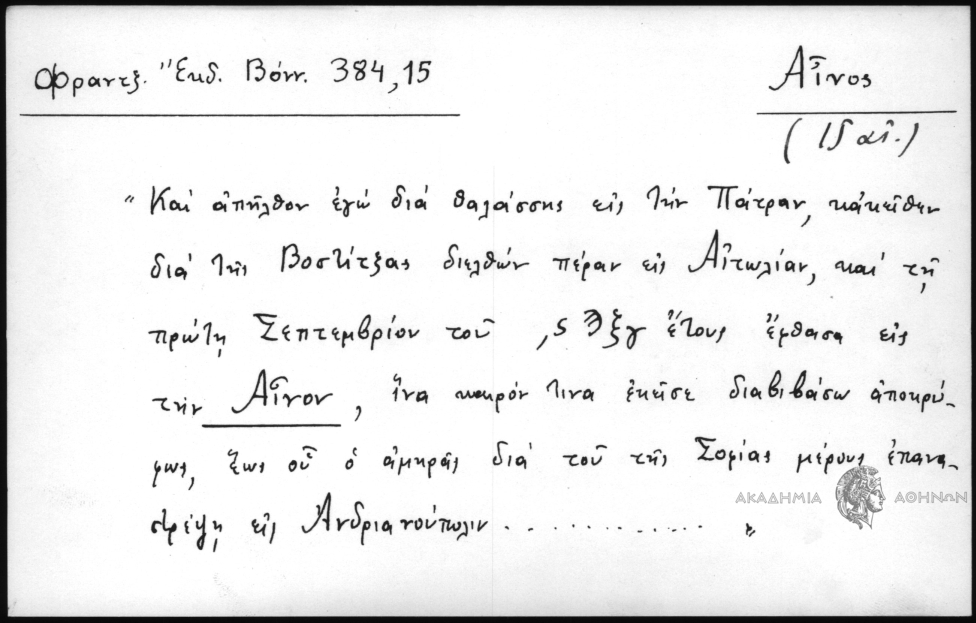 Φραντζ. Ἔκδ. Βόνν. 384,15
Αἶνος
(15 αἰ.)
"Καὶ ἀπῆλθον ἐγώ διά θαλάσσης εἰς τήν Πάτραν, κἀκεῖθεν
διά τῆς Βοστίτζας διελθών πέραν εἰς Αἰτωλίαν, καί τῇ
πρώτῃ Σεπτεμβρίου τοῦ ,ϛϠξγ ἔτους ἔφθασα εἰς
τήν Αἶνον, ἵνα καιρόν τινα ἐκεῖσε διαβιβάσω ἀποκρύ-
φως, ἕως οὗ ὁ ἀμηρᾶς διά τοῦ τῆς Σοφίας μέρους ἐπανα-
στρέψῃ εἰς Ἀνδριανούπολιν .............. "
ΑΚΑΔΗΜΙΑ ΑΘΗΝΩΝ